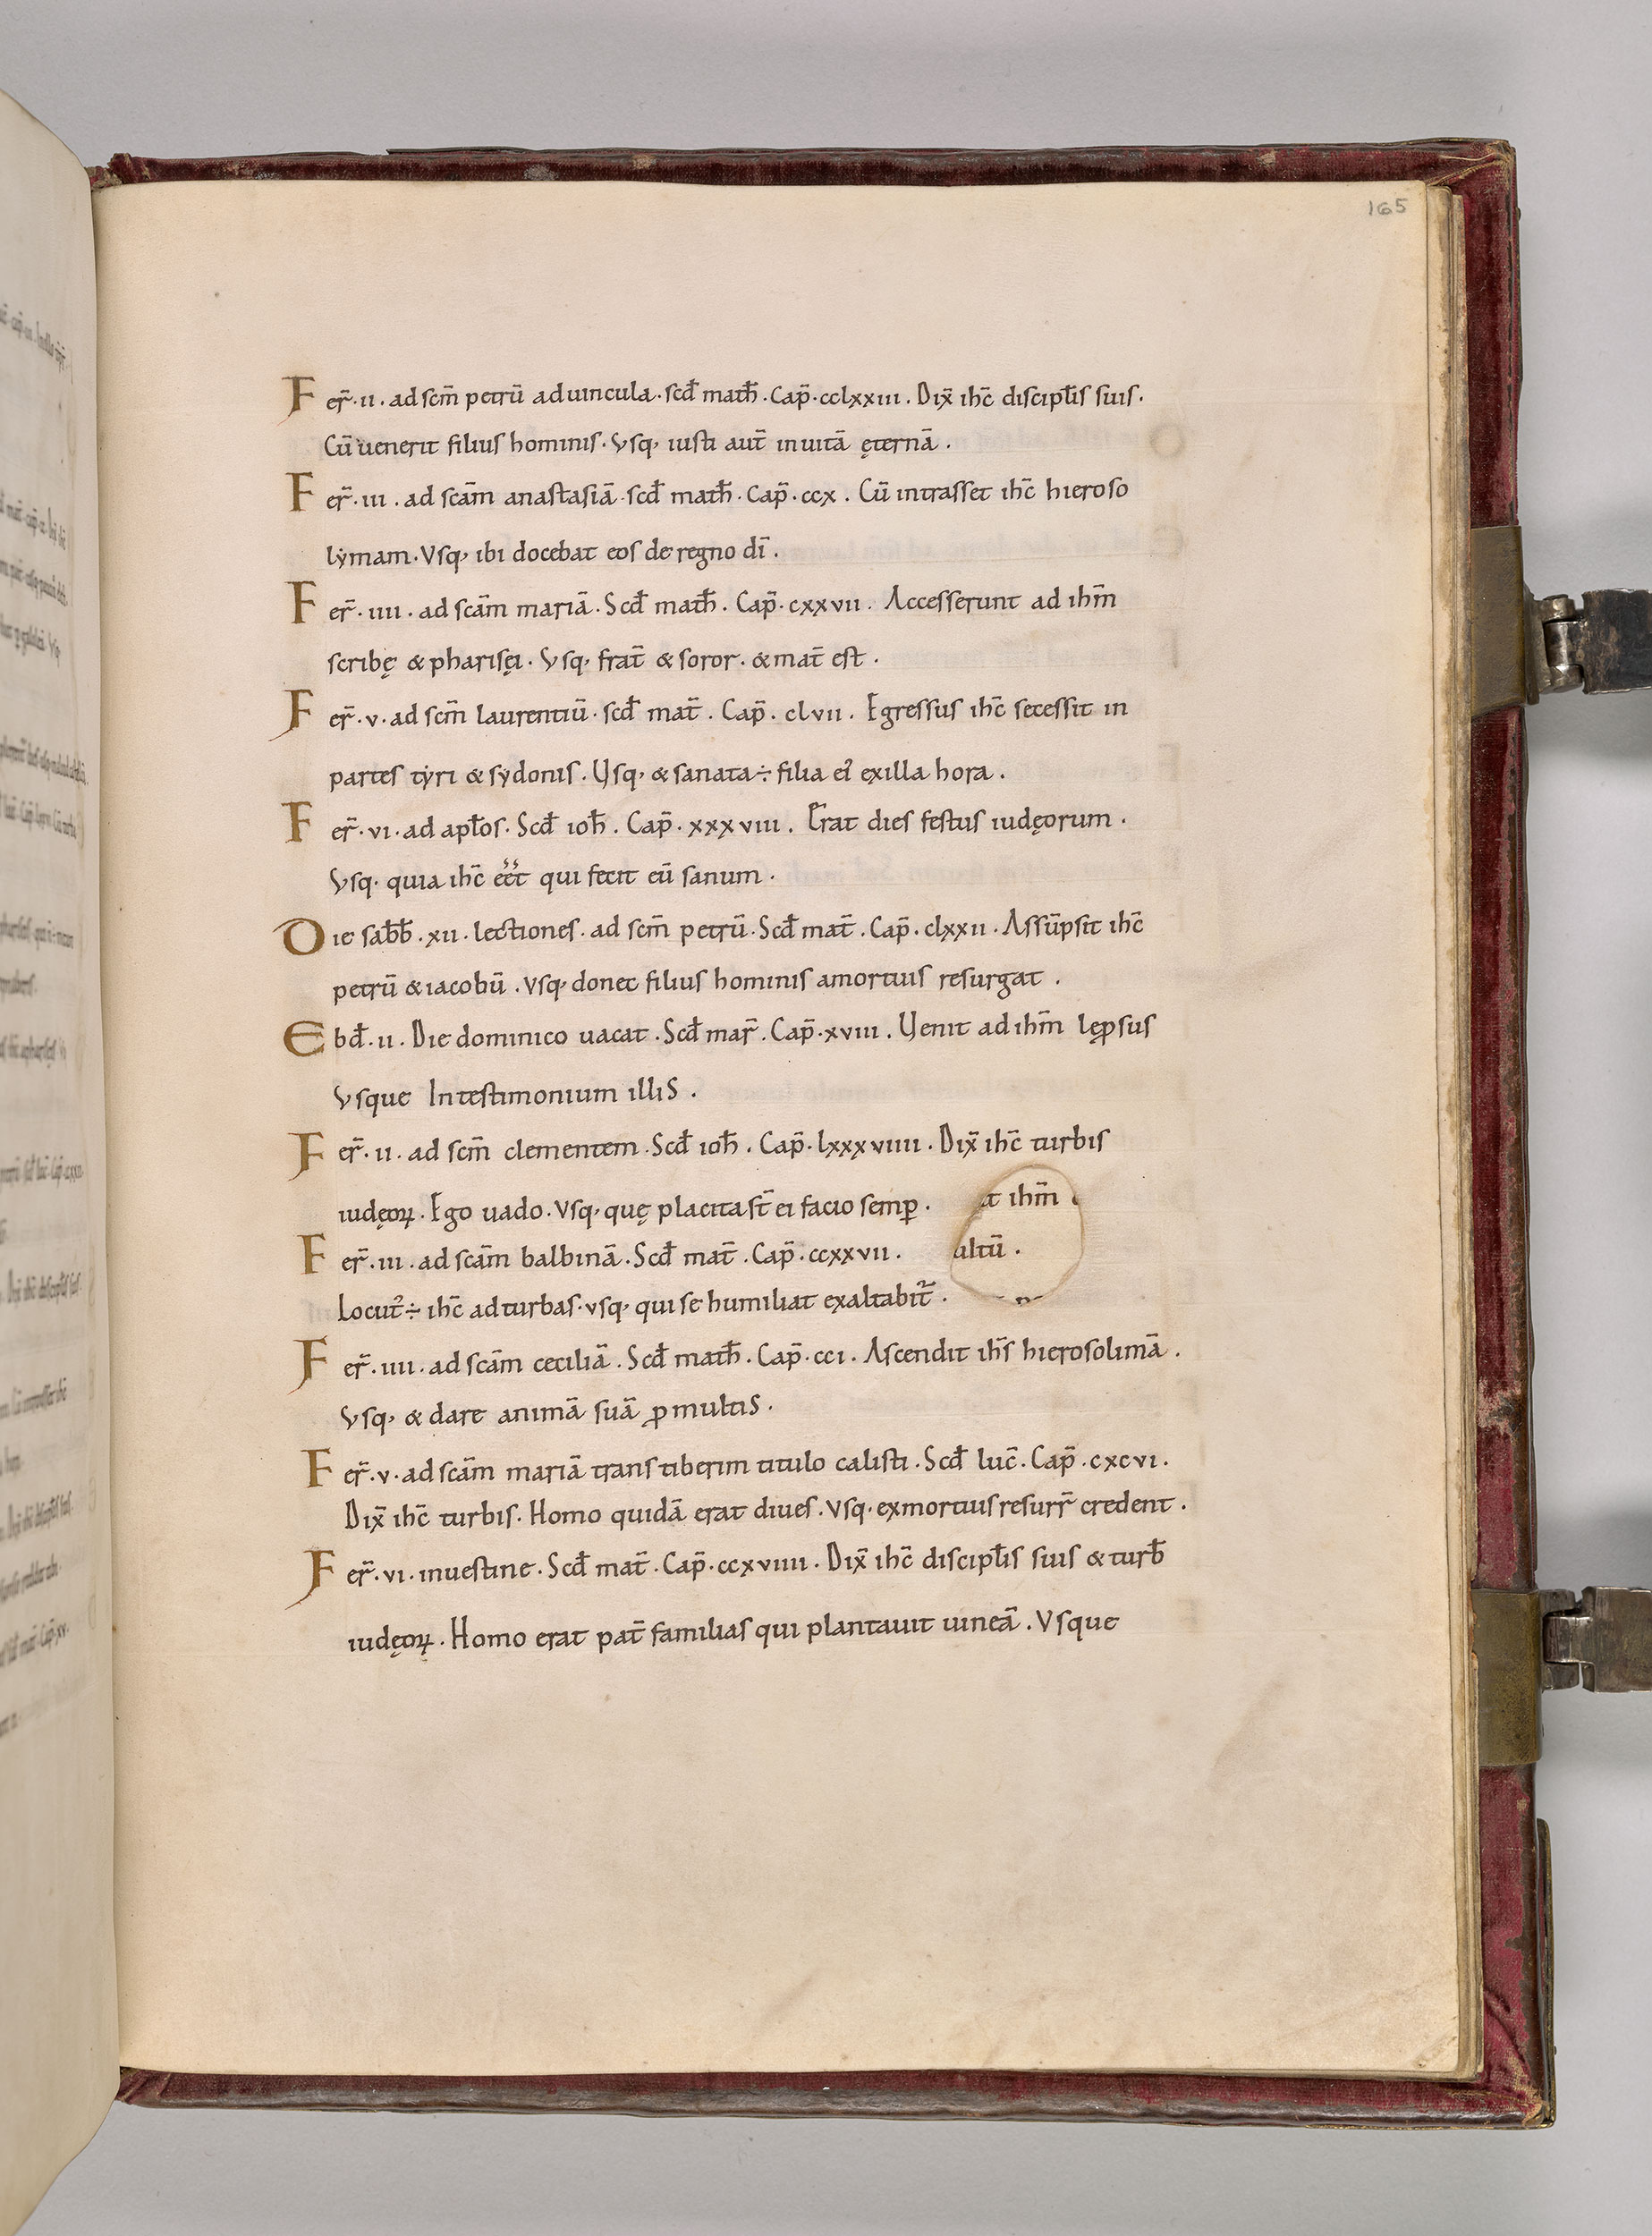 165
Fer̄·ii·ad scm̄ petrū aduincula·scd̄ math̄·Cap̄·cclxxiii·Dix̄ ihc̄ discipl̄is suis·
Cū uenerit filius hominis·Vsq; iusti aut̄ inuitā ęternā·
Fer̄·iii·ad scām anastasiā·scd̄ math̄·Cap̄·ccx·Cū intrasset ihc̄ hieroso
lẏmam·Vsq; ibi docebat eos de regno dī·
Fer̄·iiii·ad scām mariā·Scd̄ math̄·Cap̄·cxxvii·Accesserunt ad ihm̄
scribę & pharisęi·Vsq; frat̄ & soror·& mat̄ est·
Fer̄·v·ad scm̄ laurentiū·scd̄ mat̄·Cap̄·clvii·Egressus ihc̄ secessit in
partes tẏri & sẏdonis·Vsq; & sanata ÷ filia ei exilla hora·
Fer̄·vi·ad apl̄os·Scd̄ ioh̄·Cap̄·xxxviii·Erat dies festus iudęorum·
Vsq· quia ihc̄ eēt qui fecit eū sanum·
Die sab̄b̄·xii·lectiones·ad scm̄ petrū·Scd̄ mat̄·Cap̄·clxxii·Assūpsit ihc̄
petrū & iacobū·vsq; donec filius hominis amortuis resurgat·
Ebd̄·ii·Die dominico uacat·Scd̄ mar̄·Cap̄·xviii·Venit ad ihm̄ lęꝓsus
Vsque Intestimonium illis·
Fer̄·ii·ad scm̄ clementem·Scd̄ ioh̄·Cap̄·lxxxviiii·Dix̄ ihc̄ turbis
iudęoꝝ·Ego uado·Vsq; quę placita st̄ ei facio semꝑ· t ihm̄
Fer̄·iii·ad scām balbinā·Scd̄ mat̄·Cap̄·ccxxvii· ultū·
Locut᾽ ÷ ihc̄ adturbas·vsq; qui se humiliat exaltabit̄·
Fer̄·iiii·ad scām ceciliā·Scd̄ math̄·Cap̄·cci·Ascendit ihs̄ hierosolimā·
Vsq; & dare animā suā ꝓ multis·
Fer̄·v·ad scām mariā transtiberim titulo calisti·Scd̄ luc̄·Cap̄·cxcvi·
Dix̄ ihc̄ turbis·Homo quidā erat diues·Vsq·exmortuis resurr̄ credent·
Fer̄·vi·inuestine·Scd̄ mat̄·Cap̄·ccxviiii·Dix̄ ihc̄ discipl̄is suis & turb̄
iudęoꝝ·Homo erat pat̄ familias qui plantauit uineā·Vsque